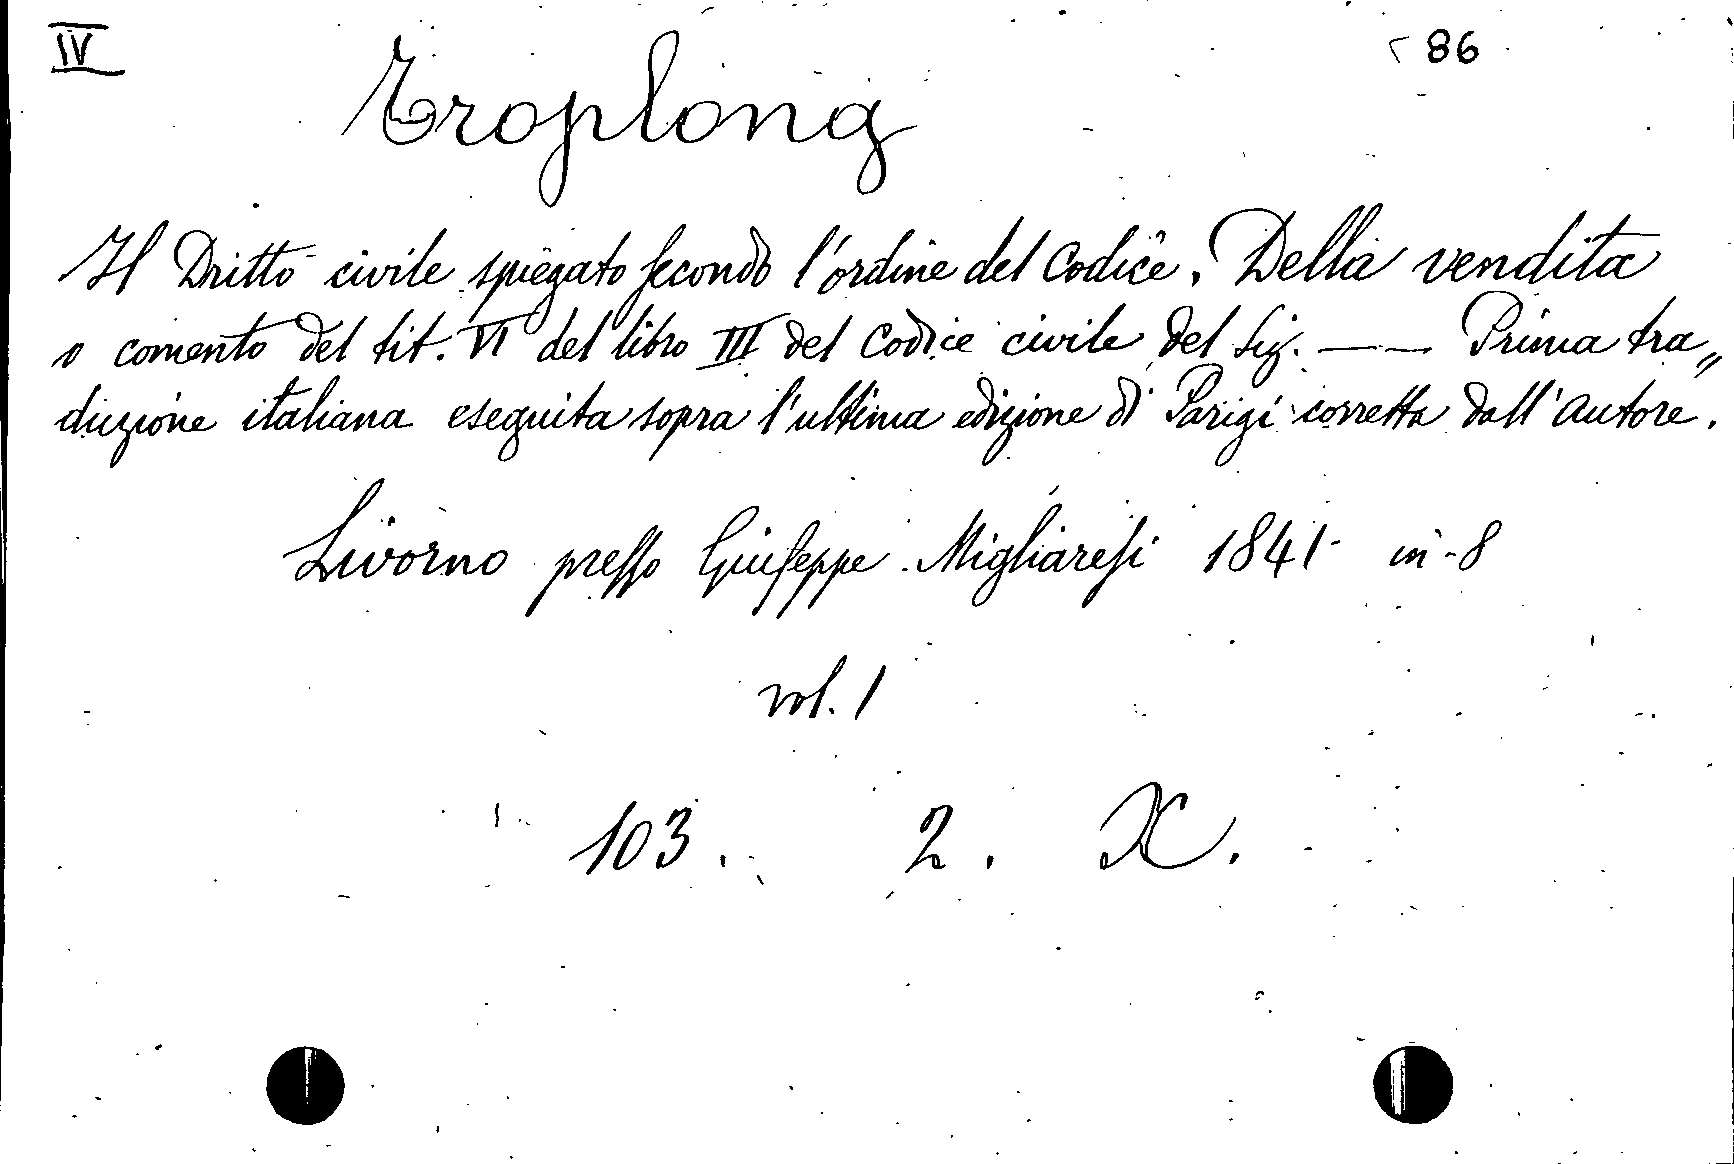 IV
86
Troplong
Il Dritto civile spiegato secondo l'ordine del Codice. Della vendita
o comento del tit. VI del libro III del Codice civile del Sig. —— Prima tra„
duzione italiana eseguita sopra l'ultima edizione di Parigi corretta dall'Autore.
Livorno presso Giuseppe Migliaresi 1841 in-8
vol. 1
103. 2. X.